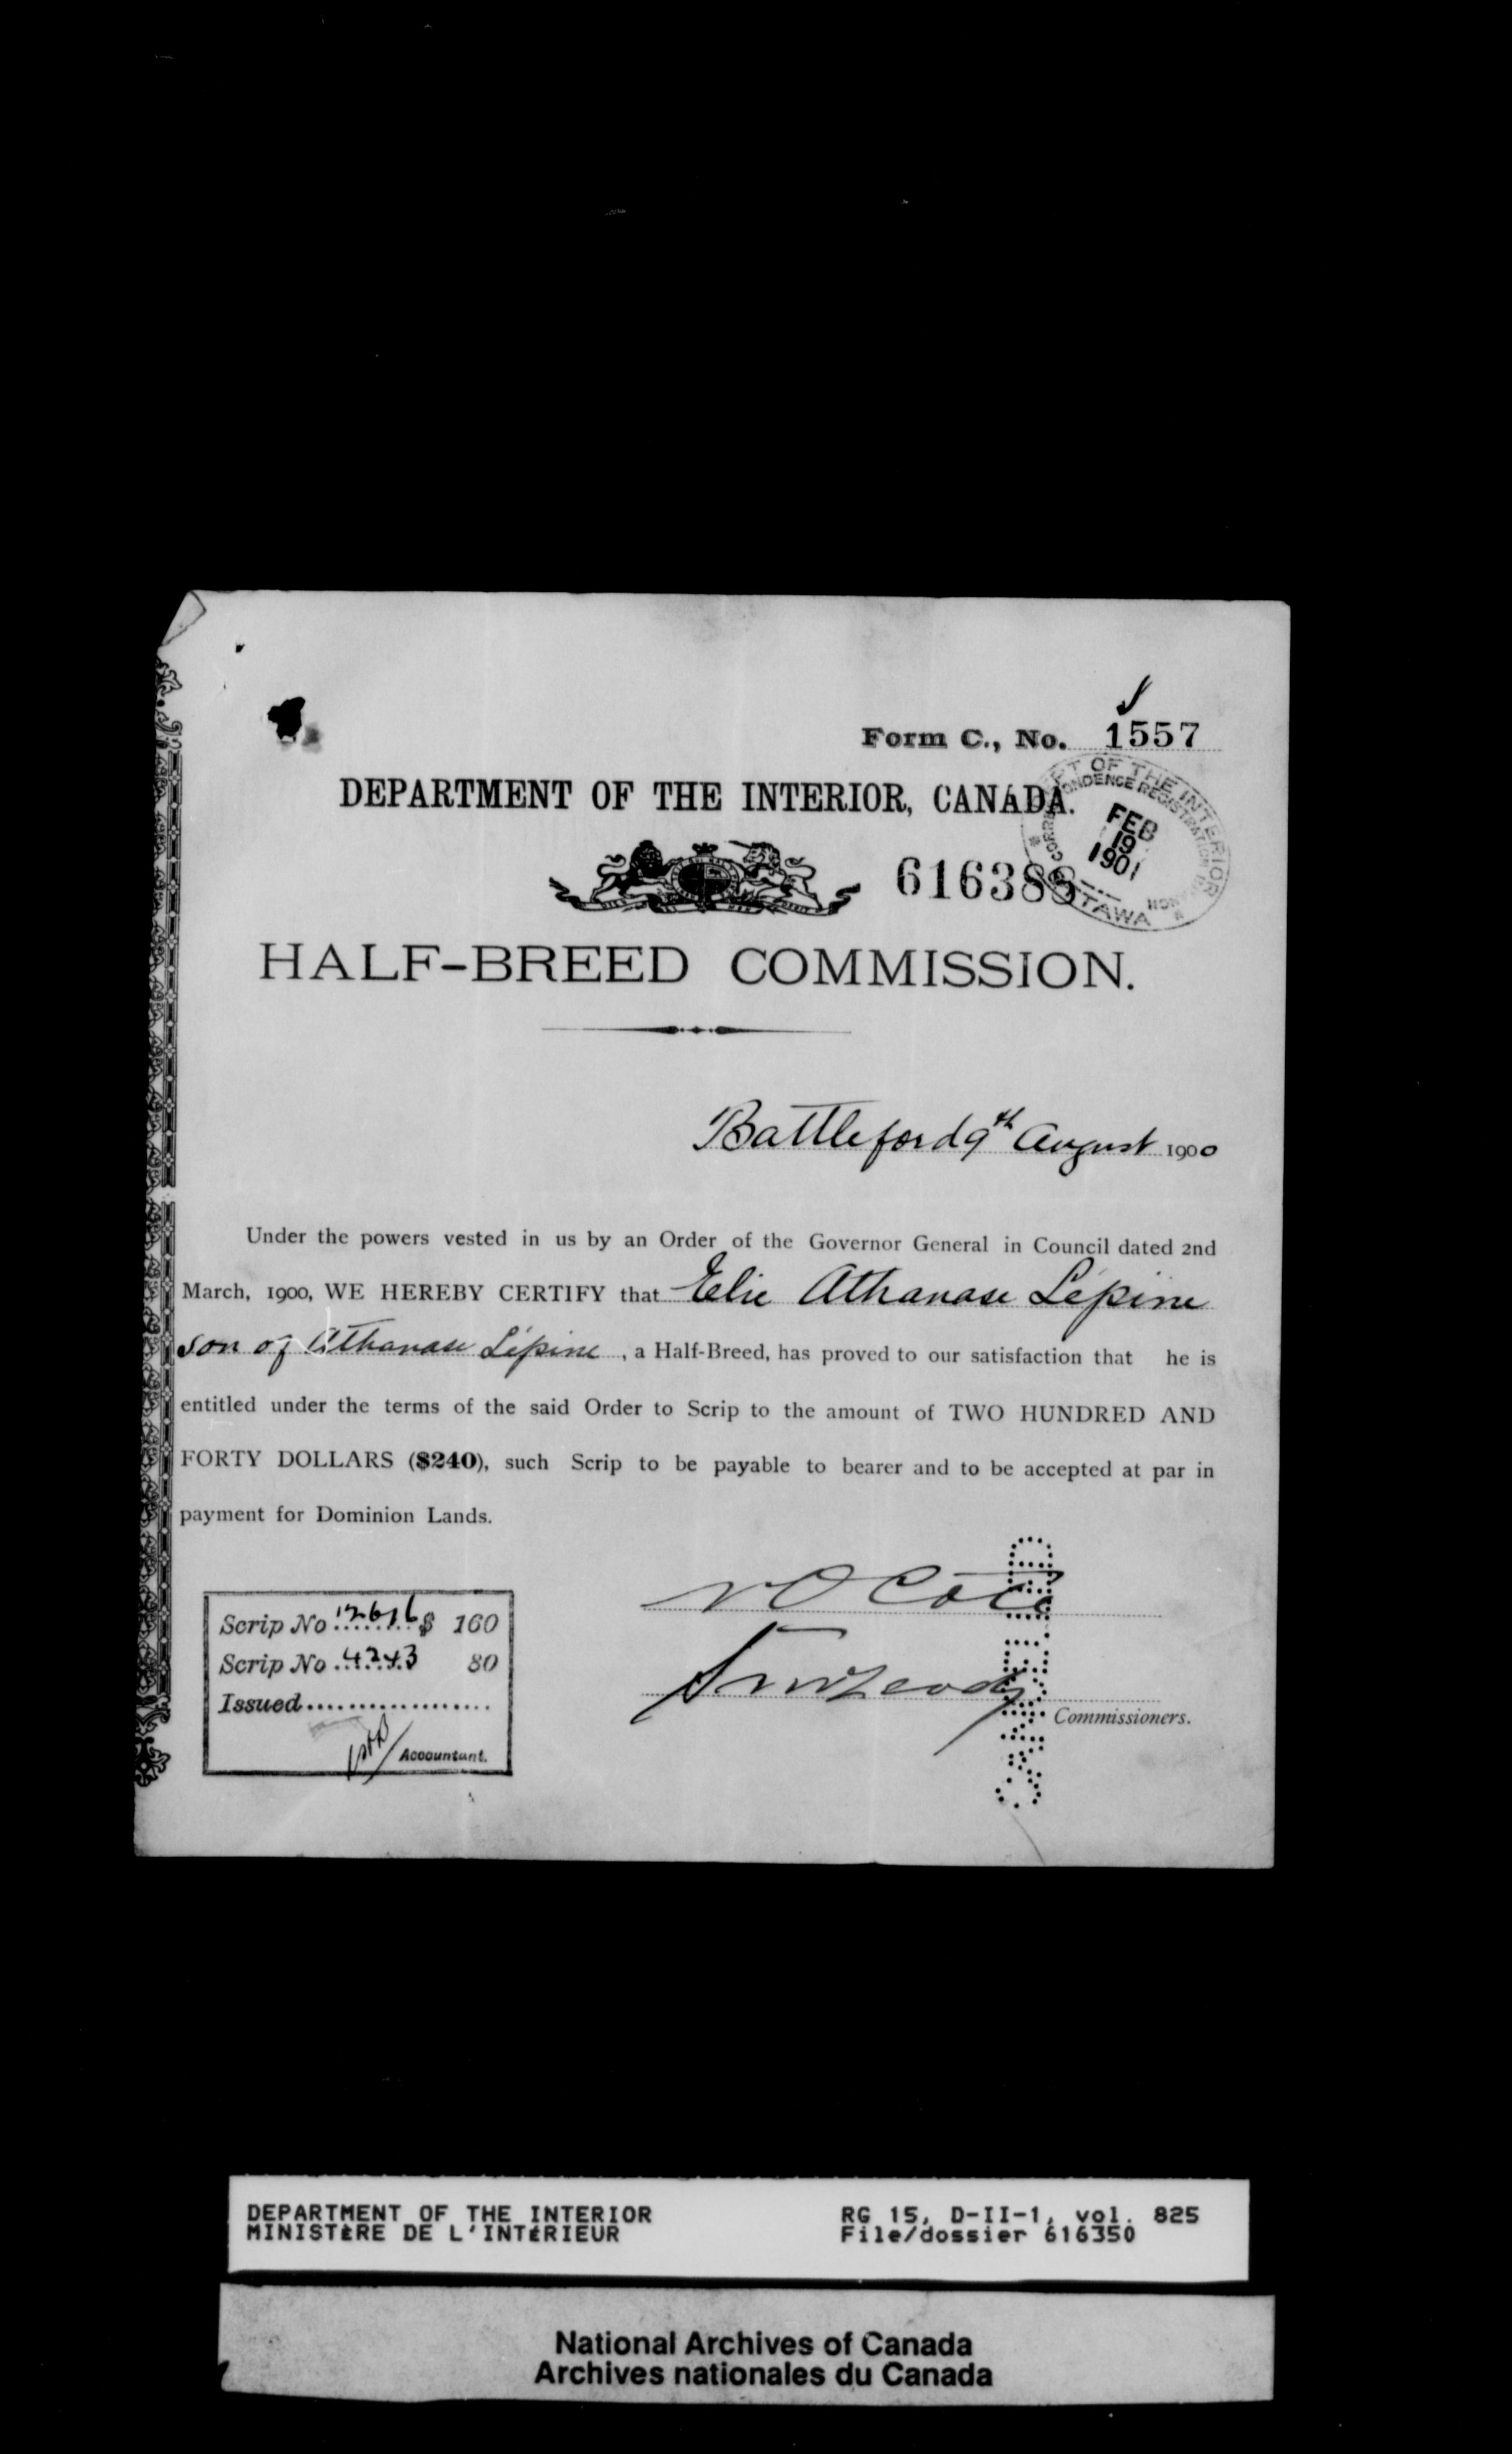 Form C., No. 1557
DEPARTMENT OF THE INTERIOR, CANADA.
DEPT OF THE INTERIOR
CORRESPONDENCE REGISTRATION BRANCH
FEB
19
1901
OTTAWA
616388
HALF-BREED COMMISSION.
Battleford 9th August 1900
Under the powers vested in us by an Order of the Governor General in Council dated 2nd
March, 1900, WE HEREBY CERTIFY that Elie Athanase Lépine
son of Athanase Lépine, a Half-Breed, has proved to our satisfaction that he is
entitled under the terms of the said Order to Scrip to the amount of TWO HUNDRED AND
FORTY DOLLARS ($240), such Scrip to be payable to bearer and to be accepted at par in
payment for Dominion Lands.
Côté
Commissioners.
Scrip No 12616 $ 160
Scrip No 4243 80
Issued
Accountant.
DEPARTMENT OF THE INTERIOR
MINISTÈRE DE L'INTÉRIEUR
RG 15, D-II-1, vol. 825
File/dossier 616350
National Archives of Canada
Archives nationales du Canada